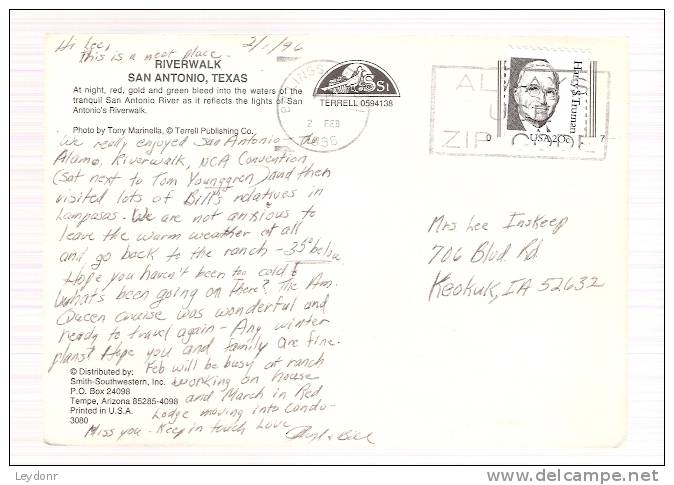 Hi Lee, 2/1/96
This is a neat place -
RIVERWALK
SAN ANTONIO, TEXAS
At night, red, gold and green bleed into the waters of the
tranquil San Antonio River as it reflects the lights of San
Antonio's Riverwalk.
Photo by Tony Marinella, © Terrell Publishing Co.
TERRELL 0594138
We really enjoyed San Antonio - The
Alamo, Riverwalk, NCA Convention
(sat next to Tom Younggren) and then
visited lots of Bill's relatives in
Lampasas. We are not anxious to
leave the warm weather at all
and go back to the ranch - 35° below
Hope you haven't been too cold &
Whats been going on There? The Am.
Queen cruise was wonderful and
ready to travel again - Any winter
plans? Hope you and family are fine.
Feb will be busy at ranch
working on house
and March in Red
Lodge moving into Condo -
Miss you - Keep in touch Love
& Bill
© Distributed by:
Smith-Southwestern, Inc.
P.O. Box 24098
Tempe, Arizona 85285-4098
Printed in U.S.A.
3080
2 FEB
1996
ALWAYS
USE
ZIP CODE
Harry S. Truman
USA 20c
Mrs Lee Inskeep
706 Blvd Rd
Keokuk, IA 52632
Leydonr
delcampe.net